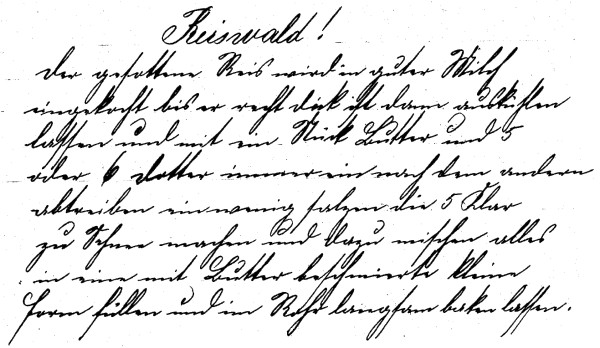 Reiswald!
der gesottene Reis wird in guter Milch
eingekocht bis er recht dick ist dann auskühlen
lassen und mit ein Stück Butter und 5
oder 6 Dotter immer ein nach dem andern
abtreiben ein wenig salzen die 5 Klar
zu Schnee machen und dazu mischen alles
in eine mit Butter beschmierte kleine
Form füllen und im Rohr langsam baken lassen.